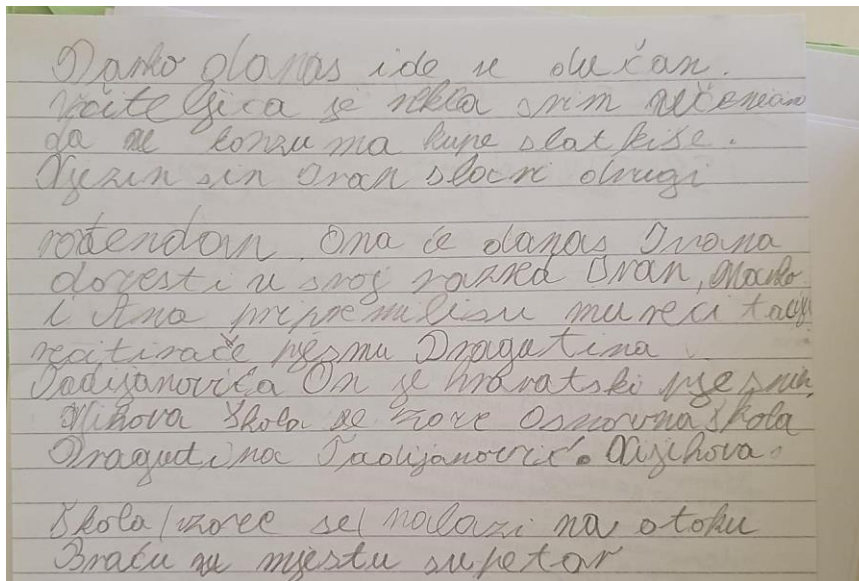 Marko danas ide u dućan.
Učiteljica je rekla svim učenicima
da u konzuma kupe slatkiše.
Njezin sin Ivan slavi drugi
rođendan. Ona će danas Ivana
dovesti u svoj razred Ivan, Marko
i Ana pripremili su mu recitaciju
recitirače pjesmu Dragutina
Tadijanovića On je hravatski pjesnik.
Njihova škola se zove Osnovna škola
Dragutina Tadijanović. Njihova.
škola zove se nalazi na otoku
Braću u mjestu supetar